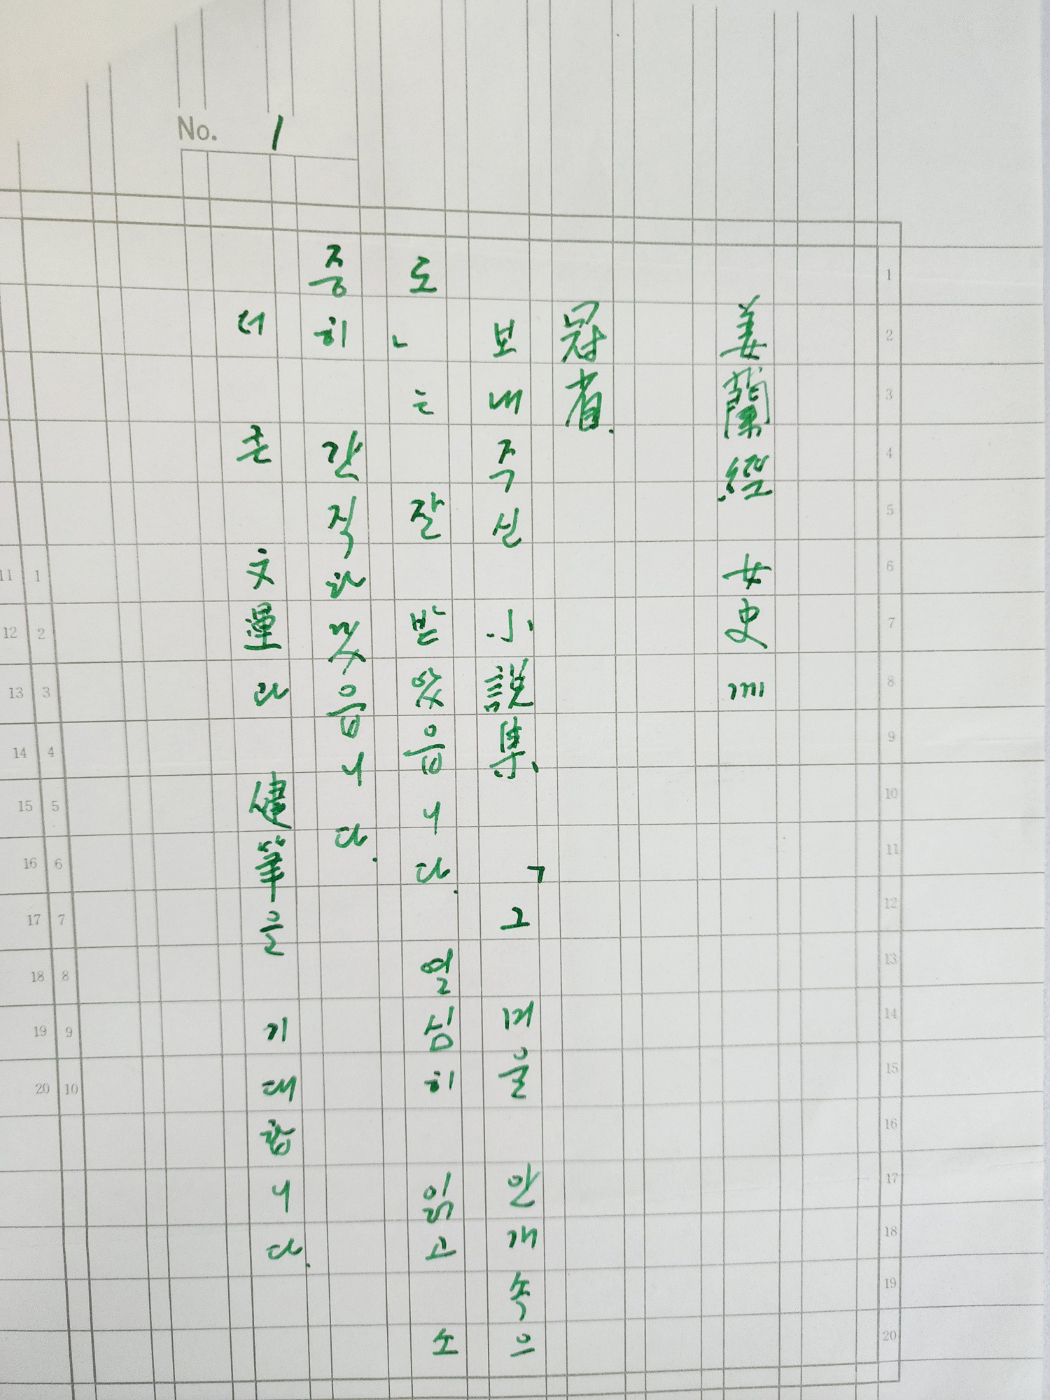 No. 1
姜蘭經 女史 에
冠省.
보내 주신 小說集、「그 머물 안개 속으
로」는 잘 받았읍니다. 열심히 읽고 소
중히 간직하겠읍니다.
더 큰 文運과 健筆을 기대합니다.
1
2
3
4
5
6
7
8
9
10
11
12
13
14
15
16
17
18
19
20
11 1
12 2
13 3
14 4
15 5
16 6
17 7
18 8
19 9
20 10